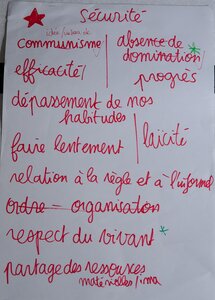 Sécurité
communisme/ absence de
domination/
efficacité/ progrès
dépassement de nos
habitudes
faire lentement / laïcité
relation à la règle et à l'informel
ordre - organisation
respect du vivant *
partage des ressources
matérielles/imma